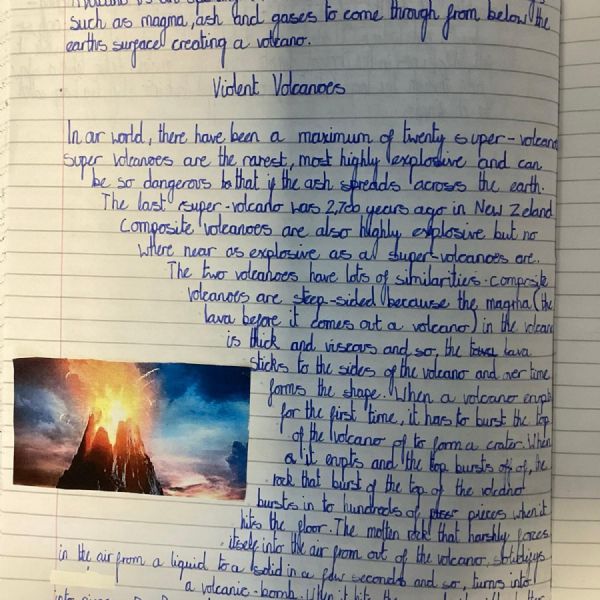 such as magma, ash and gases to come through from below the
earths surface creating a volcano.
Violent Volcanoes
In our world, there have been a maximum of twenty super-volcano
super volcanoes are the rarest, most highly explosive and can
be so dangerous to that if the ash spreads across the earth.
The last super-volcano was 2,700 years ago in New Zeland
Composite volcanoes are also highly explosive but no
where near as explosive as a super-volcanoes are.
The two volcanoes have lots of similarities. composite
volcanoes are steep-sided because the magma (the
lava before it comes out a volcano) in the volcano
is thick and viscous and so, the lava
sticks to the sides of the volcano and over time
forms the shape. When a volcano erupts
for the first time, it has to burst the top
of the volcano of to form a crater. When
a it erupts and the top bursts off of, the
rock that burst of the top of the volcano
bursts in to hundreds of pieces when it
hits the floor. The molten rock that harshly forces
itself into the air from out of the volcano, solidifys
in the air from a liquid to a solid in a few seconds and so, turns into
a volcanic-bomb. When it hits the